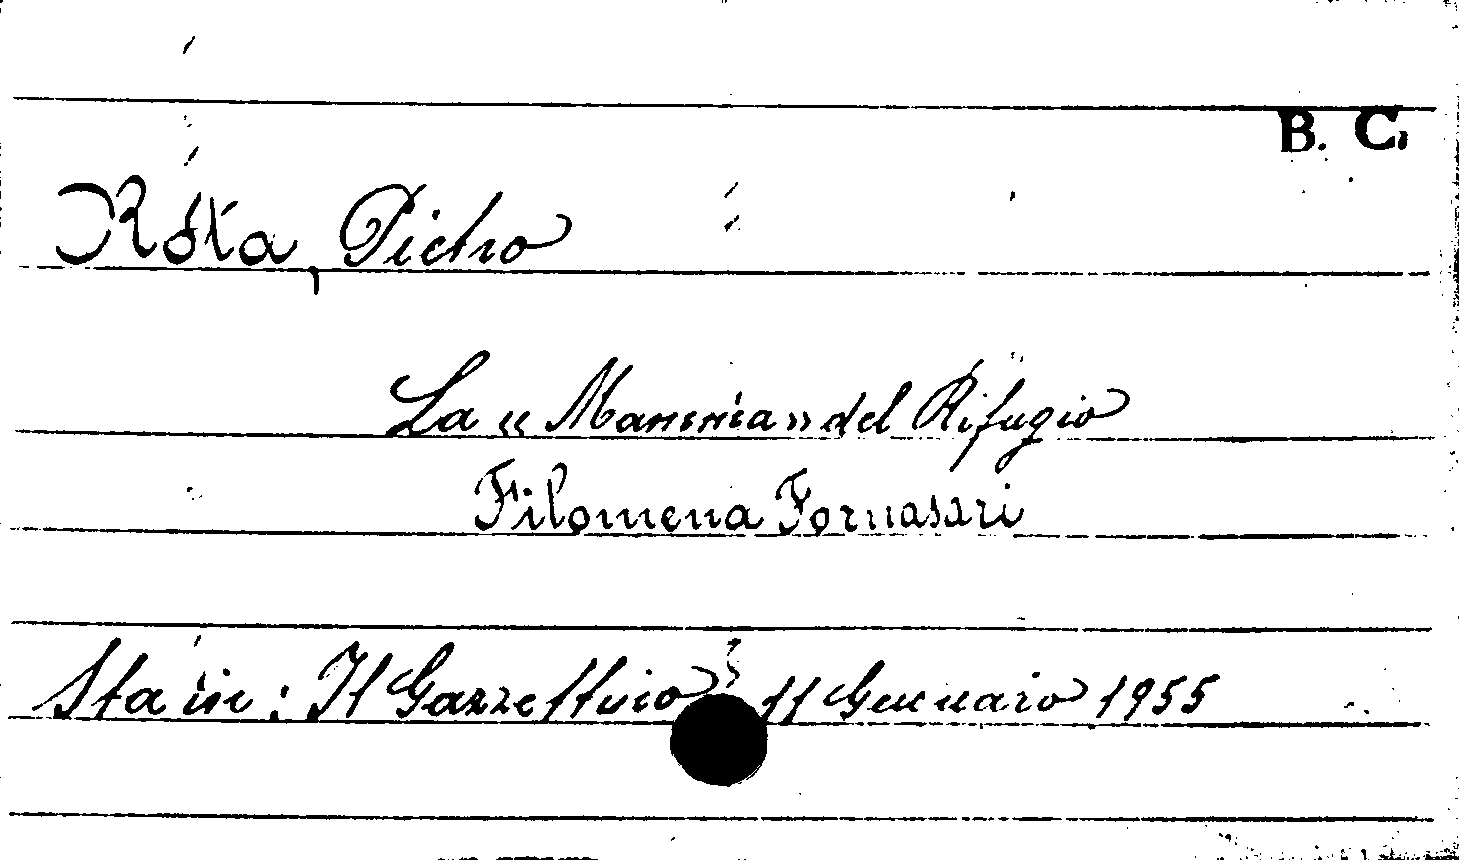 B. C.
Rota, Pietro
La « Mamma » del Rifugio
Filomena Fornasari
Sta in: Il Gazzettino 11 Gennaio 1955